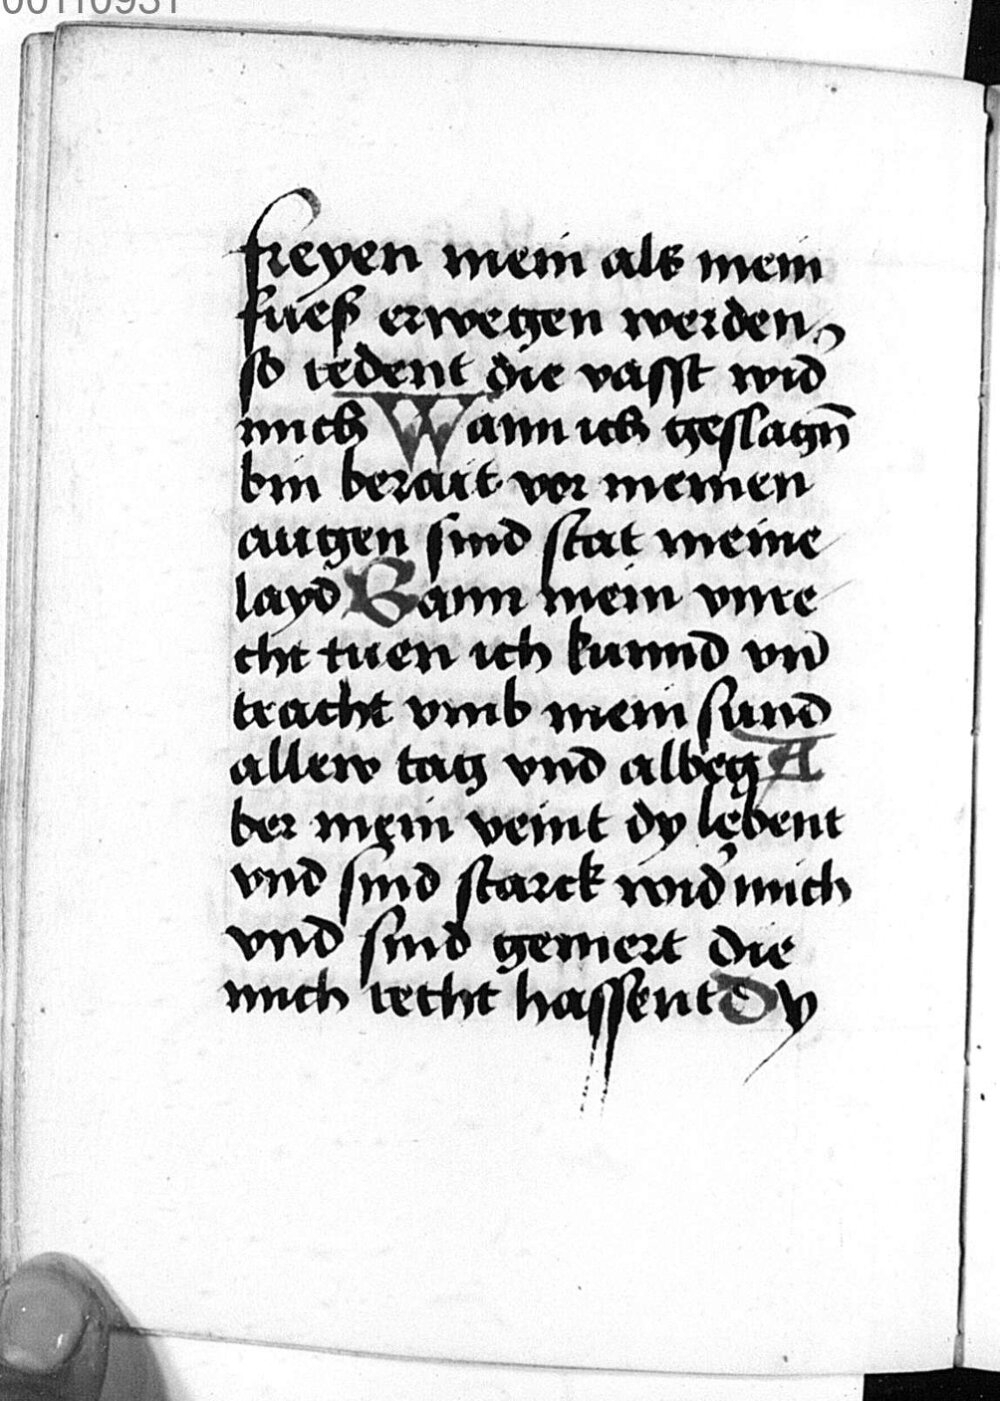 00110931
freyen mein als mein
fuess erwegen werden
so redent die vasst wid
mich Wann ich geslagn̄
bin berait vor meinen
augen sind stat meine
layd Wann mein vnre
cht tuen ich kunnd vn̄
tracht vmb mein sund
allew tag vnd albeg A
ber mein veint dy lebent
vnd sind starck wid mich
vnd sind gemert die
mich recht hassent Dy